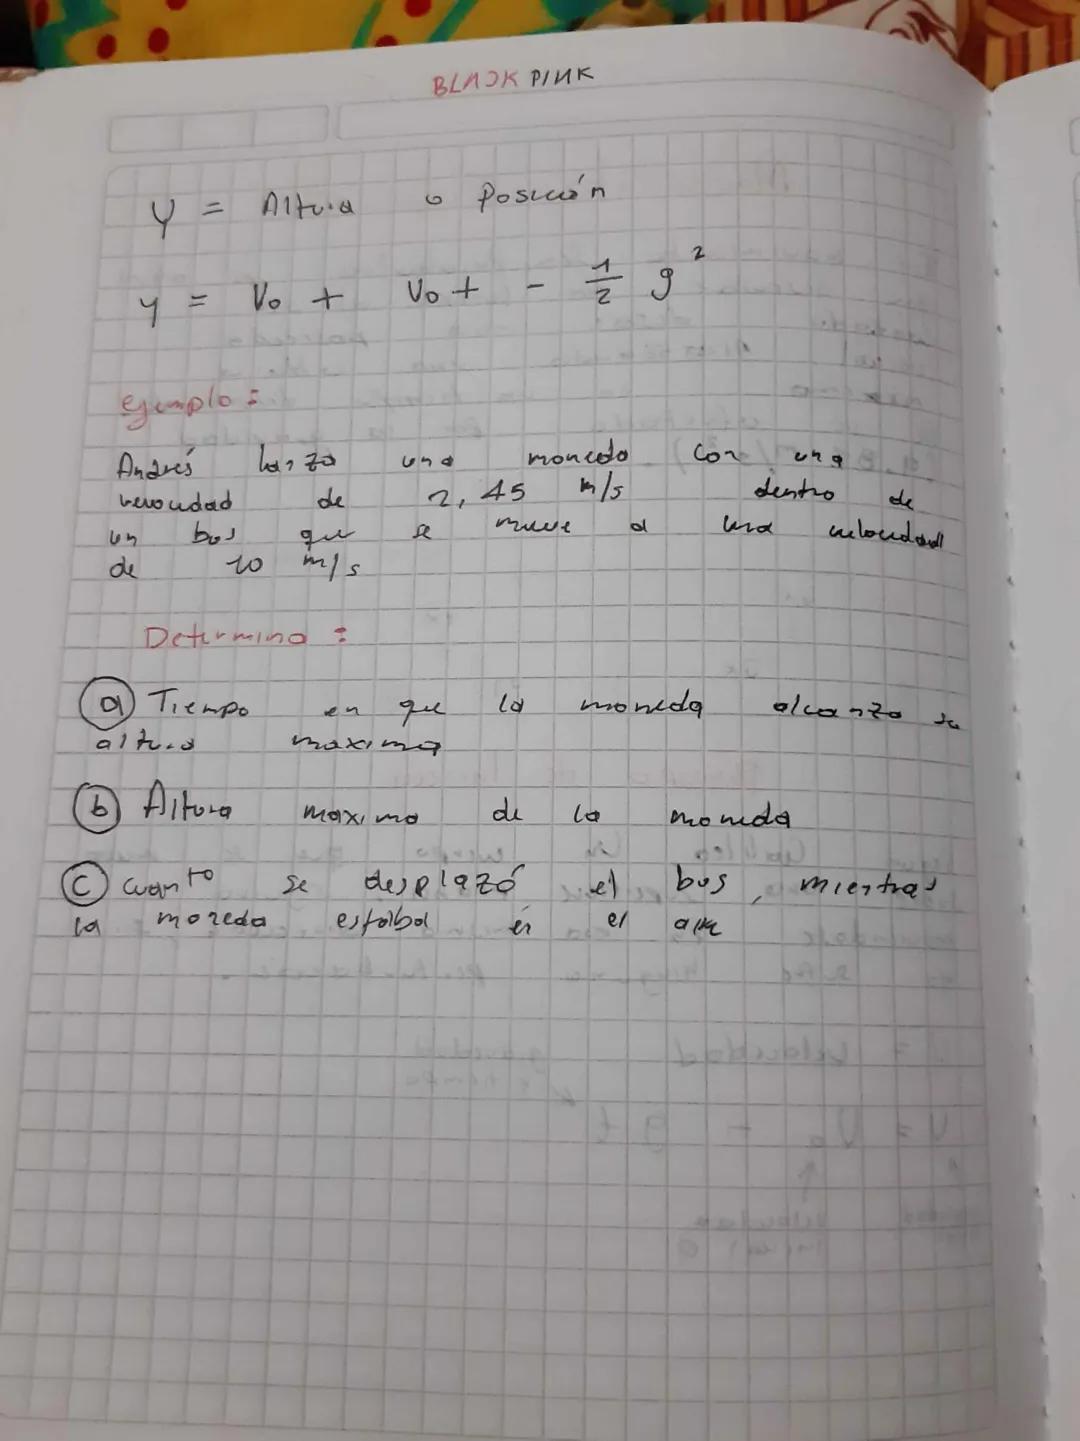 BLACK PINK
Y = Altura o Posición
y = Vo + Vo t - 1/2 g²
ejemplo:
Andrés lanza una moneda con una
velocidad de 2,45 m/s dentro de
un bus que se mueve a una velocidad
de 10 m/s
Determino:
a) Tiempo en que la moneda alcanza su
altura maxima
b) Altura maxima de la moneda
c) cuanto se desplazó el bus, mientras
la moneda estaba en el aire